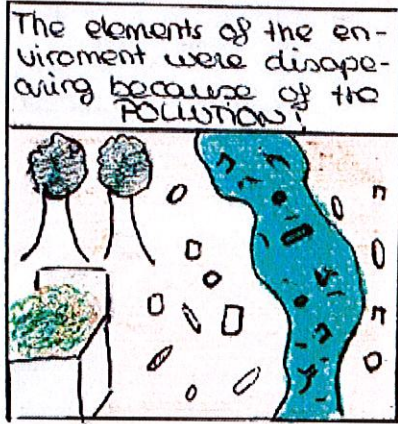 The elements of the en-
viroment were disape-
aring because of the
POLLUTION!